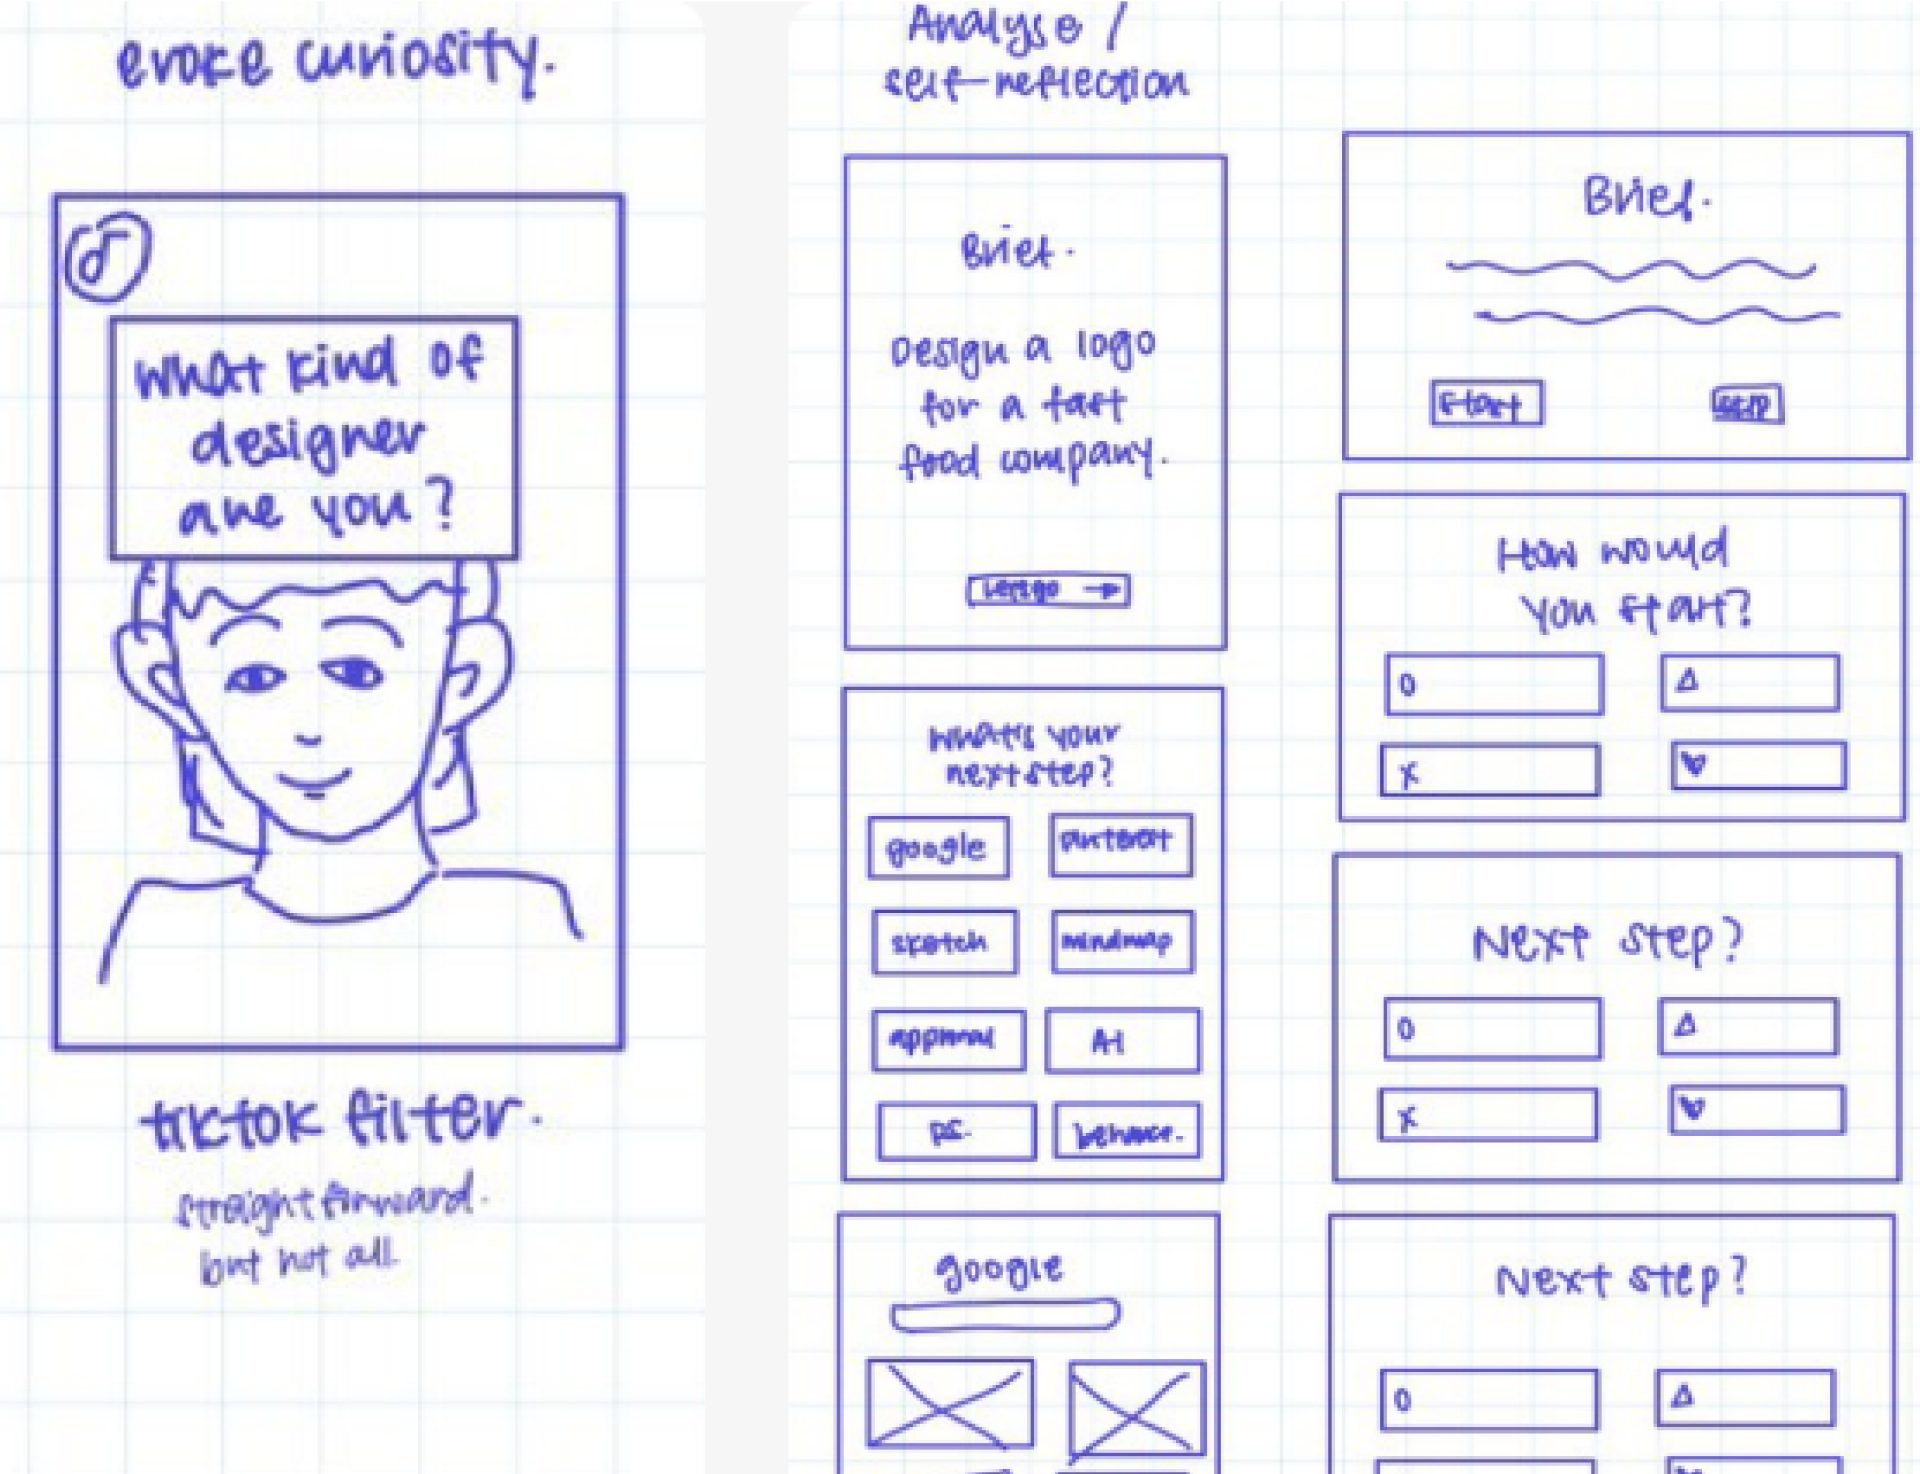 evoke curiosity.
What kind of
designer
are you?
tiktok filter.
straight forward.
but not all
Analyse /
self-reflection
Brief.
Design a logo
for a fast
food company.
Let's go →
What's your
next step?
google
pinterest
sketch
mindmap
approval
AI
PS.
behance.
google
Brief.
start
How would
you start?
O
Δ
X
♥
Next step?
O
Δ
X
♥
Next step?
O
Δ